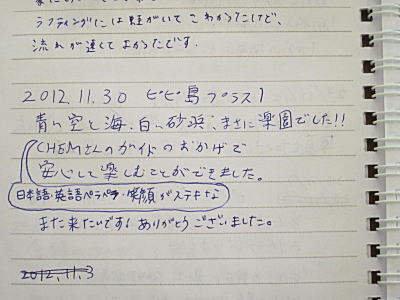 ラフティングには蛙がいてこわかったけど、
流れが速くてよかったです。
2012.11.30 ピピ島プラス1
青い空と海、白い砂浜、まさに楽園でした!!
CHEMさんのガイドのおかげで
安心して楽しむことができました。
日本語・英語ペラペラ・笑顔がステキな
また来たいです!ありがとうございました。
2012.11.3